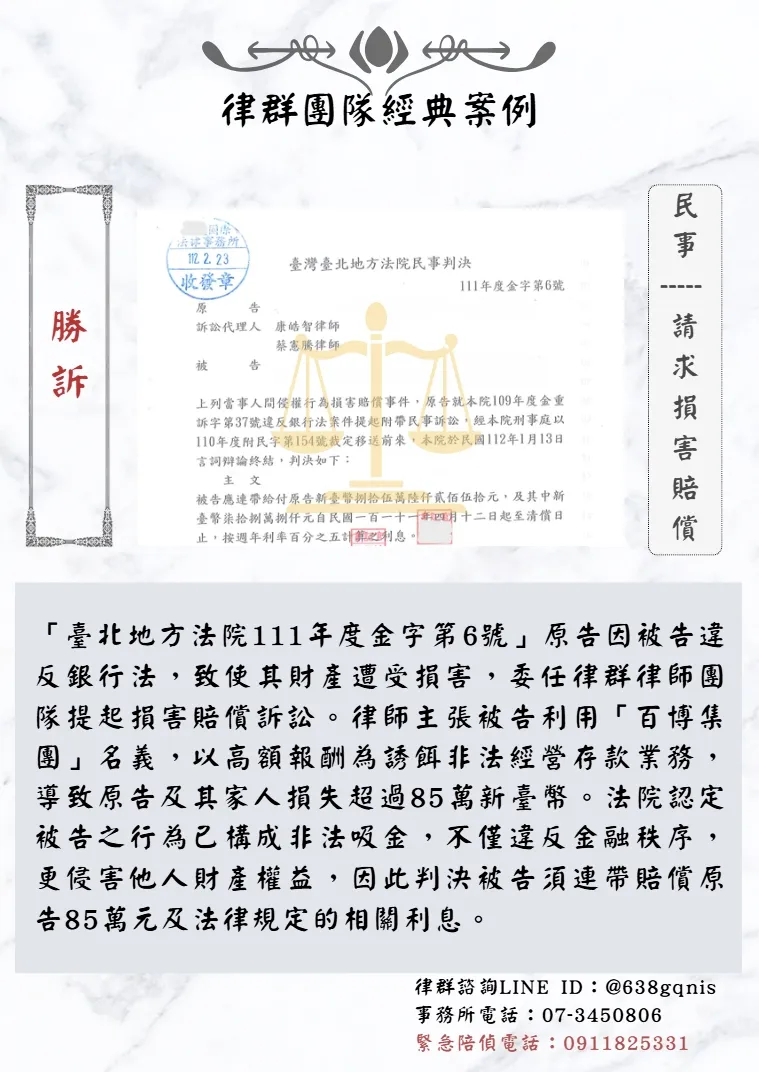 律群團隊經典案例
勝訴
法律事務所
112.2.23
收發章
臺灣臺北地方法院民事判決
111年度金字第6號
原 告
訴訟代理人 康皓智律師
蔡憲騰律師
被 告
上列當事人間侵權行為損害賠償事件,原告就本院109年度金重
訴字第37號違反銀行法案件提起附帶民事訴訟,經本院刑事庭以
110年度附民字第154號裁定移送前來,本院於民國112年1月13日
言詞辯論終結,判決如下:
主 文
被告應連帶給付原告新臺幣捌拾伍萬陸仟貳佰伍拾元,及其中新
臺幣柒拾捌萬捌仟元自民國一百一十一年 月十二日起至清償日
止,按週年利率百分之五計算之利息。
民事-----請求損害賠償
「臺北地方法院111年度金字第6號」原告因被告違
反銀行法,致使其財產遭受損害,委任律群律師團
隊提起損害賠償訴訟。律師主張被告利用「百博集
團」名義,以高額報酬為誘餌非法經營存款業務,
導致原告及其家人損失超過85萬新臺幣。法院認定
被告之行為已構成非法吸金,不僅違反金融秩序,
更侵害他人財產權益,因此判決被告須連帶賠償原
告85萬元及法律規定的相關利息。
律群諮詢LINE ID:@638gqnis
事務所電話:07-3450806
緊急陪偵電話:0911825331